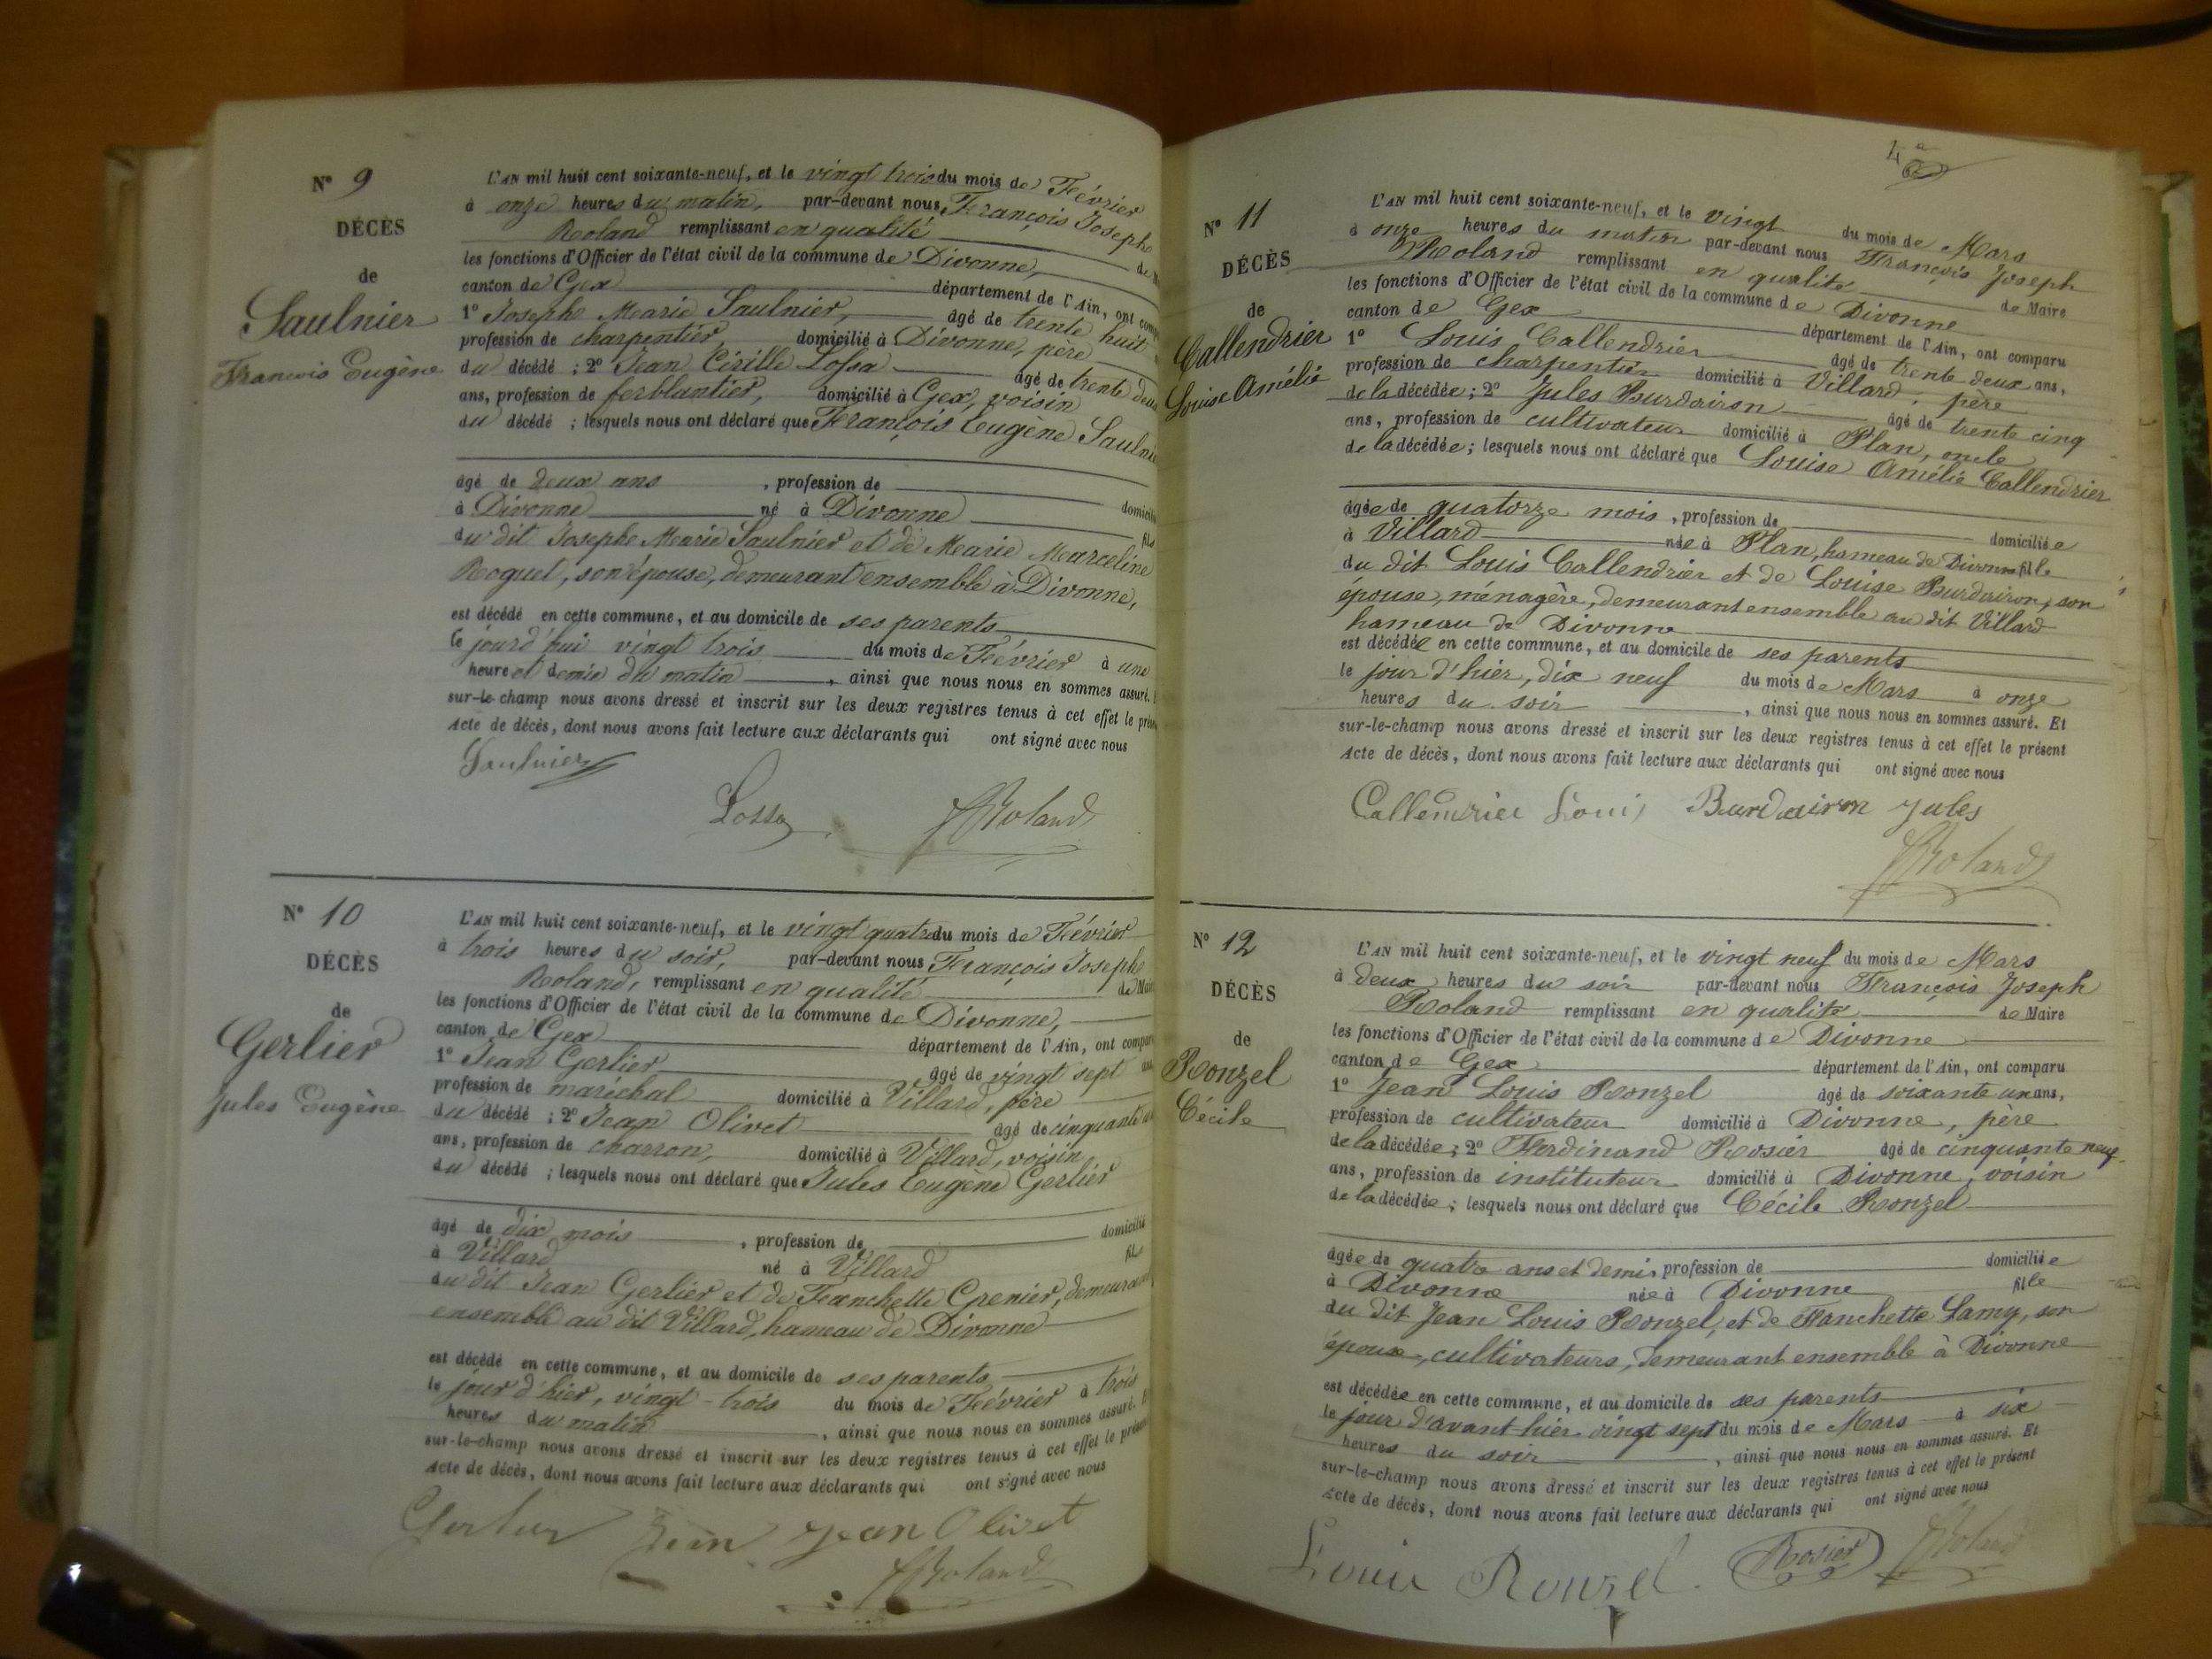 N° 9
DÉCÈS
de
Saulnier
François Eugène
L'AN mil huit cent soixante-neuf, et le vingt trois du mois de Février
à onze heures du matin, par-devant nous François Joseph
Roland remplissant en qualité
les fonctions d'Officier de l'état civil de la commune de Divonne,
canton de Gex département de l'Ain, ont
1° Joseph Marie Saulnier, âgé de trente huit
profession de charpentier, domicilié à Divonne, père
du décédé ; 2° Jean Cirille Lossa âgé de trente deux
ans, profession de ferblantier, domicilié à Gex, voisin
du décédé ; lesquels nous ont déclaré que François Eugène
âgé de deux ans , profession de
à Divonne né à Divonne fils
du dit Joseph Marie Saulnier et de Marie Marceline
Roguet, son épouse, demeurant ensemble à Divonne,
est décédé en cette commune, et au domicile de ses parents
le jourd'hui vingt trois du mois de Février à une
heure et demie du matin , ainsi que nous nous en sommes assuré.
sur-le-champ nous avons dressé et inscrit sur les deux registres tenus à cet effet le
Acte de décès, dont nous avons fait lecture aux déclarants qui ont signé avec nous
Saulnier
Lossa Roland
N° 10
DÉCÈS
de
Gerlier
Jules Eugène
L'AN mil huit cent soixante-neuf, et le vingt quatre du mois de Février
à trois heures du soir, par-devant nous François Joseph
Roland, remplissant en qualité
les fonctions d'Officier de l'état civil de la commune de Divonne,
canton de Gex département de l'Ain, ont
1° Jean Gerlier âgé de vingt sept
profession de maréchal domicilié à Villard, père
du décédé ; 2° Jean Olivet âgé de cinquante
ans, profession de charron, domicilié à Villard, voisin
du décédé ; lesquels nous ont déclaré que Jules Eugène Gerlier
âgé de dix mois , profession de domicilié
à Villard né à Villard fils
du dit Jean Gerlier et de Franchette Grenier,
ensemble au dit Villard, hameau de Divonne
est décédé en cette commune, et au domicile de ses parents
le jour d'hier, vingt-trois du mois de Février à trois
heures du matin , ainsi que nous nous en sommes assuré.
sur-le-champ nous avons dressé et inscrit sur les deux registres tenus à cet effet le
Acte de décès, dont nous avons fait lecture aux déclarants qui ont signé avec nous
Gerlier Jean Jean Olivet
Roland
N° 11
DÉCÈS
de
Callendrier
Louise Amélie
L'AN mil huit cent soixante-neuf, et le vingt du mois de Mars
à onze heures du matin par-devant nous François Joseph
Roland remplissant en qualité de Maire
les fonctions d'Officier de l'état civil de la commune de Divonne
canton de Gex département de l'Ain, ont comparu
1° Louis Callendrier âgé de trente deux ans,
profession de charpentier domicilié à Villard, père
de la décédée ; 2° Jules Burdairon âgé de trente cinq
ans, profession de cultivateur domicilié à Plan, oncle
de la décédée ; lesquels nous ont déclaré que Louise Amélie Callendrier
âgée de quatorze mois , profession de domiciliée
à Villard née à Plan, hameau de Divonne fille
du dit Louis Callendrier et de Louise Burdairon, son
épouse, ménagère, demeurant ensemble au dit Villard
hameau de Divonne
est décédée en cette commune, et au domicile de ses parents
le jour d'hier, dix neuf du mois de Mars à onze
heures du soir , ainsi que nous nous en sommes assuré. Et
sur-le-champ nous avons dressé et inscrit sur les deux registres tenus à cet effet le présent
Acte de décès, dont nous avons fait lecture aux déclarants qui ont signé avec nous
Callendrier Louis Burdairon Jules
Roland
N° 12
DÉCÈS
de
Ronzel
Cécile
L'AN mil huit cent soixante-neuf, et le vingt neuf du mois de Mars
à deux heures du soir par-devant nous François Joseph
Roland remplissant en qualité de Maire
les fonctions d'Officier de l'état civil de la commune de Divonne
canton de Gex département de l'Ain, ont comparu
1° Jean Louis Ronzel âgé de soixante un ans,
profession de cultivateur domicilié à Divonne, père
de la décédée ; 2° Ferdinand Rosier âgé de cinquante neuf
ans, profession de instituteur domicilié à Divonne, voisin
de la décédée ; lesquels nous ont déclaré que Cécile Ronzel
âgée de quatre ans et demi, profession de domiciliée
à Divonne née à Divonne fille
du dit Jean Louis Ronzel, et de Franchette Lamy, son
épouse, cultivateurs, demeurant ensemble à Divonne
est décédée en cette commune, et au domicile de ses parents
le jour d'avant hier vingt sept du mois de Mars à six
heures du soir , ainsi que nous nous en sommes assuré. Et
sur-le-champ nous avons dressé et inscrit sur les deux registres tenus à cet effet le présent
Acte de décès, dont nous avons fait lecture aux déclarants qui ont signé avec nous
Louis Ronzel Rosier Roland